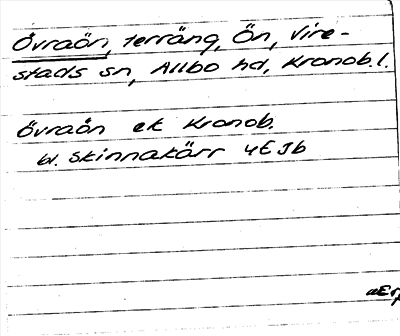 Övraön, terräng, Ön, Vire-
stads sn, Allbo hd, Kronob. l.
Övraön ek Kronob.
bl. Skinnakärr 4E5b